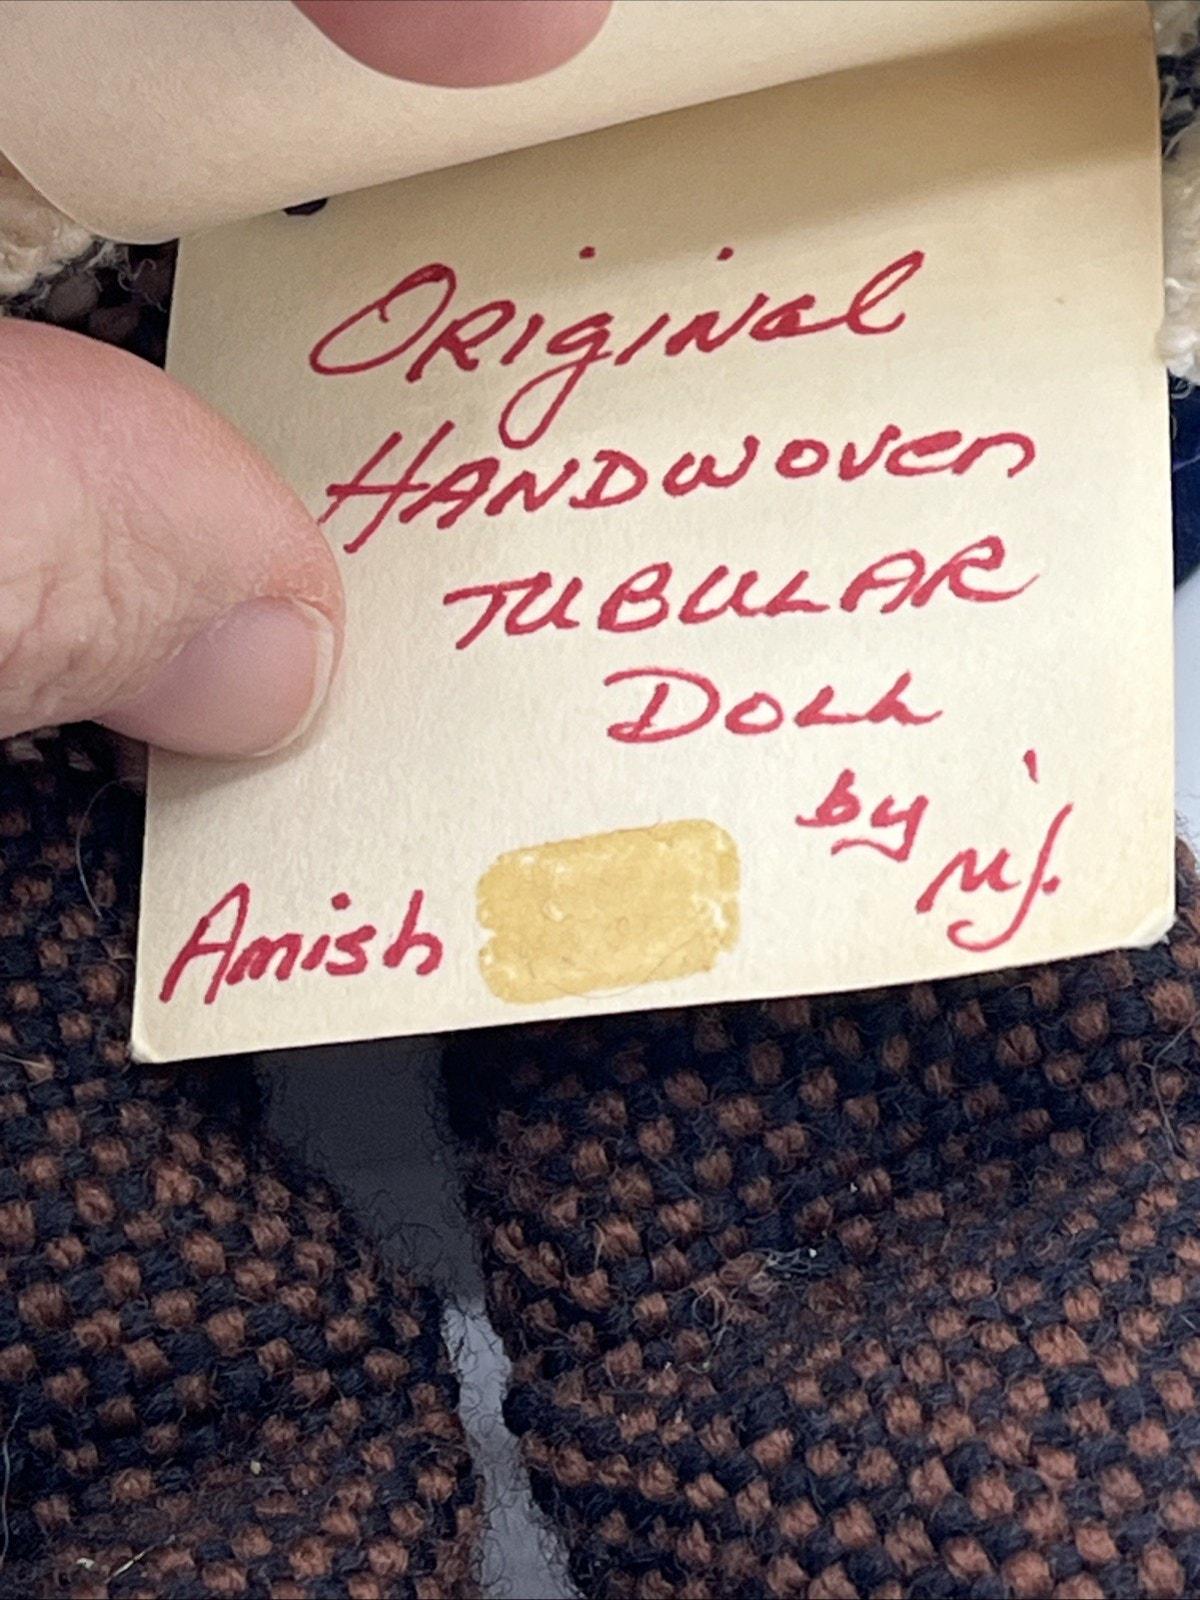 Original
HANDWOVEN
TUBULAR
DOLL
by
Amish